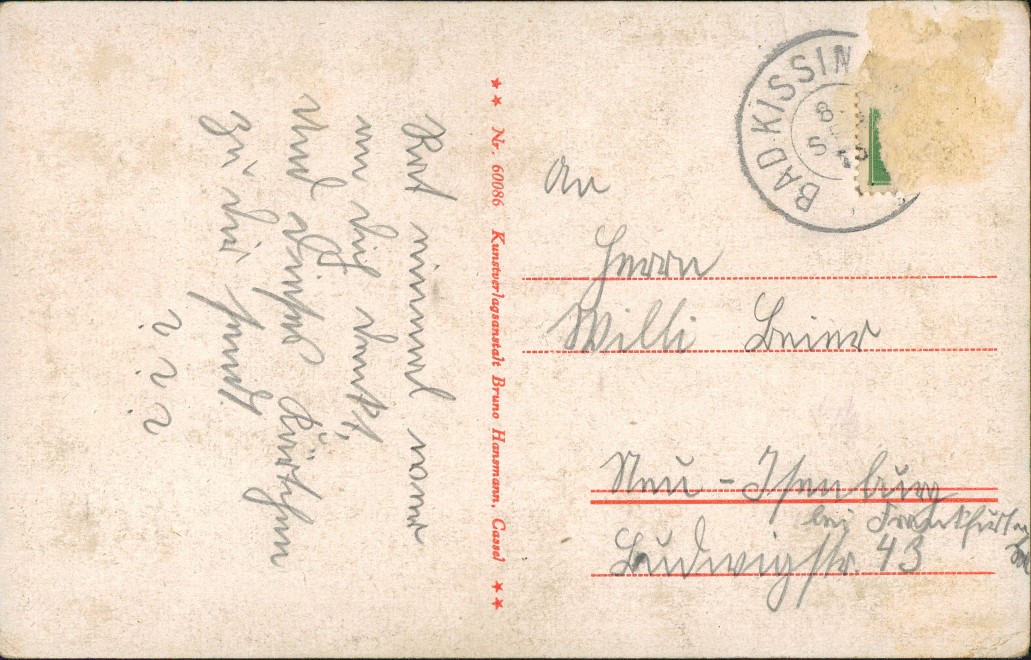 Rat einmal wer
an dich denkt,
und dieses Kärtchen
zu dir send.
? ? ?
★★ Nr. 60086 Kunstverlagsanstalt Bruno Hansmann, Cassel ★★
BAD KISSIN
8
SE
An
Herrn
Willi Beier
Neu-Isenburg
bei Frankfurt a
Ludwigstr. 43